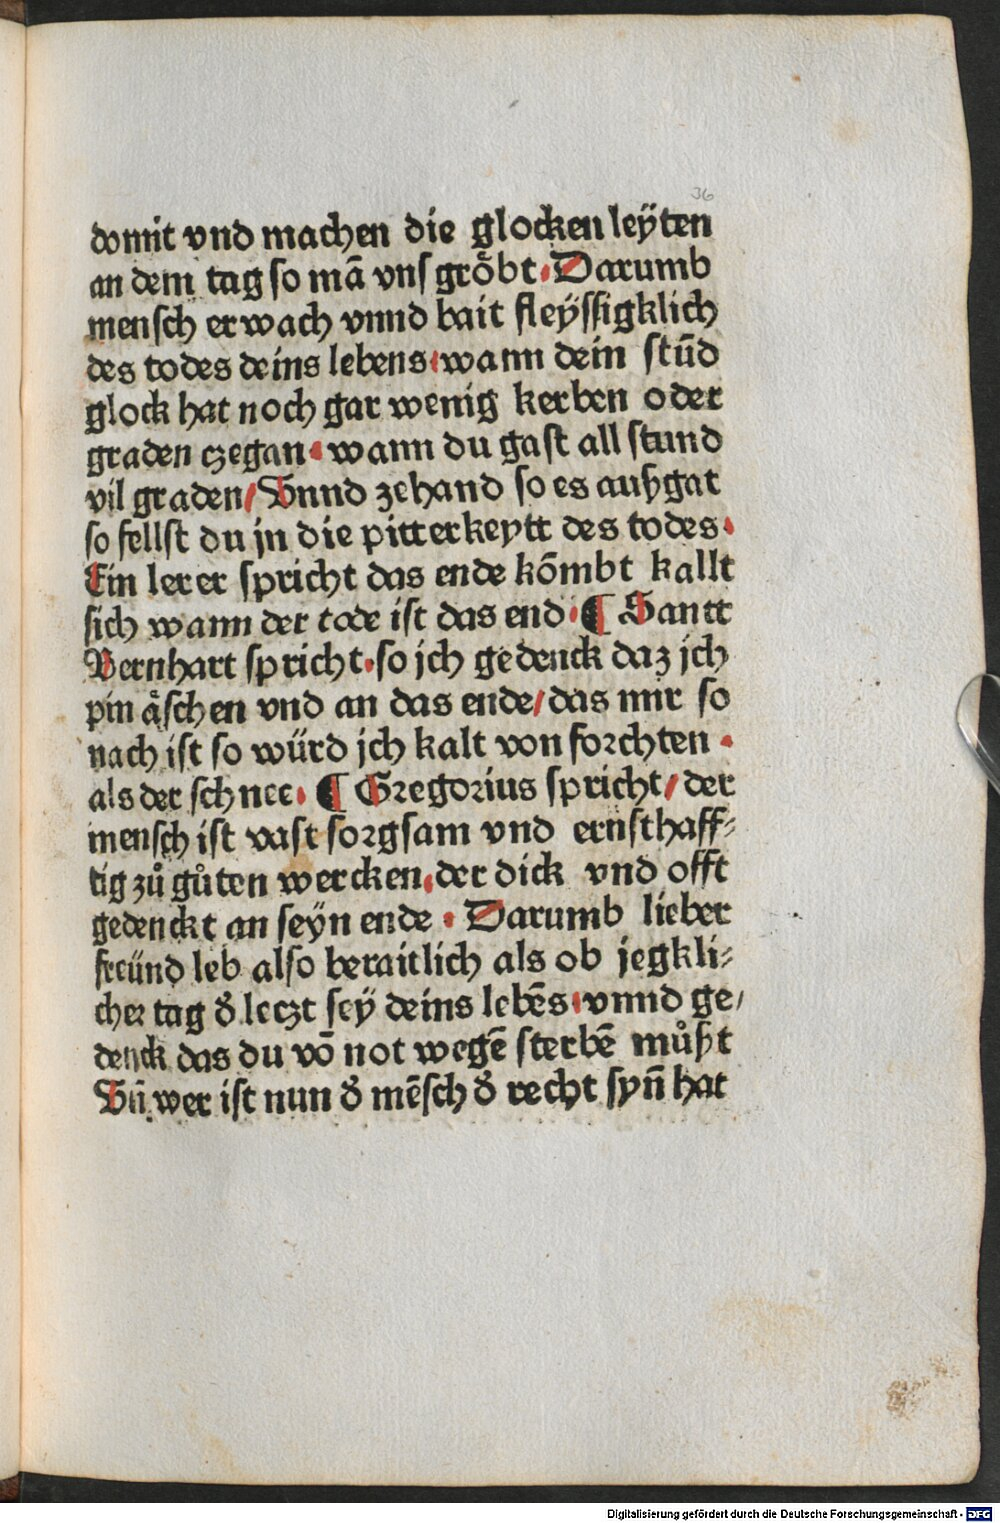 36
domit vnd machen die glocken leÿten
an dem tag so mā vns grȫbt · Darumb
mensch erwach vnnd bait fleÿssigklich
des todes deins lebens · wann dein stūd
glock hat noch gar wenig kerben oder
graden czegan · wann du gast all stund
vil graden / Vnnd zehand so es außgat
so fellst du jn die pitterkeytt des todes ·
Ein lerer spricht das ende kōmbt kallt
sich wann der tode ist das end · ¶ Santt
Bernhart spricht · so jch gedenck daz jch
pin äschen vnd an das ende / das mir so
nach ist so würd jch kalt von forchten ·
als der schnee · ¶ Gregorius spricht / der
mensch ist vast sorgsam vnd ernsthaff⸗
tig zů gůten wercken · der dick vnd offt
gedenckt an seÿn ende · Darumb lieber
freünd leb also beraitlich als ob jegkli⸗
cher tag d̄ leczt seÿ deins lebēs · vnnd ge /
denck das du vō not wegē sterbē můßt
Vn̄ wer ist nun d̄ mēsch d̄ recht syn̄ hat
Digitalisierung gefördert durch die Deutsche Forschungsgemeinschaft - DFG